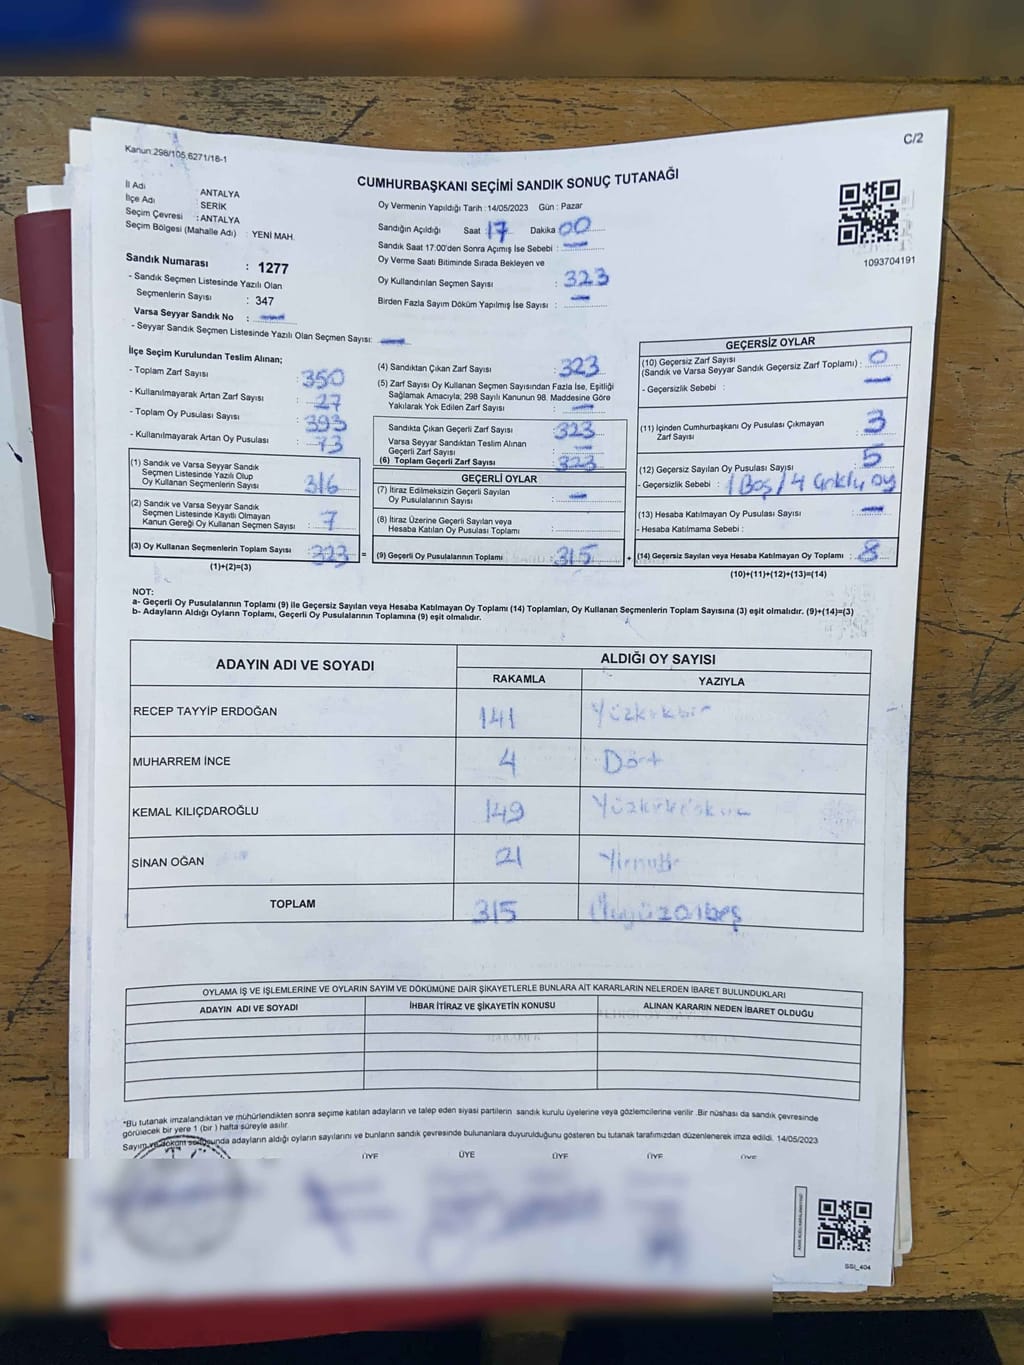 C/2
Kanun:298/105,6271/18-1
CUMHURBAŞKANI SEÇİMİ SANDIK SONUÇ TUTANAĞI
İl Adı : ANTALYA
İlçe Adı : SERİK
Seçim Çevresi : ANTALYA
Seçim Bölgesi (Mahalle Adı) : YENİ MAH.
Oy Vermenin Yapıldığı Tarih : 14/05/2023 Gün : Pazar
Sandığın Açıldığı Saat : 17 Dakika : 00
Sandık Saat 17:00'den Sonra Açımış İse Sebebi : —
Oy Verme Saati Bitiminde Sırada Bekleyen ve
Oy Kullandırılan Seçmen Sayısı : 323
Birden Fazla Sayım Döküm Yapılmış İse Sayısı : —
1093704191
Sandık Numarası : 1277
- Sandık Seçmen Listesinde Yazılı Olan
Seçmenlerin Sayısı : 347
Varsa Seyyar Sandık No : —
- Seyyar Sandık Seçmen Listesinde Yazılı Olan Seçmen Sayısı: —
İlçe Seçim Kurulundan Teslim Alınan;
- Toplam Zarf Sayısı : 350
- Kullanılmayarak Artan Zarf Sayısı : 27
- Toplam Oy Pusulası Sayısı : 393
- Kullanılmayarak Artan Oy Pusulası : 73
(1) Sandık ve Varsa Seyyar Sandık
Seçmen Listesinde Yazılı Olup
Oy Kullanan Seçmenlerin Sayısı : 316
(2) Sandık ve Varsa Seyyar Sandık
Seçmen Listesinde Kayıtlı Olmayan
Kanun Gereği Oy Kullanan Seçmen Sayısı : 7
(3) Oy Kullanan Seçmenlerin Toplam Sayısı : 323 =
(1)+(2)=(3)
(4) Sandıktan Çıkan Zarf Sayısı : 323
(5) Zarf Sayısı Oy Kullanan Seçmen Sayısından Fazla İse, Eşitliği
Sağlamak Amacıyla; 298 Sayılı Kanunun 98. Maddesine Göre
Yakılarak Yok Edilen Zarf Sayısı : —
Sandıkta Çıkan Geçerli Zarf Sayısı : 323
Varsa Seyyar Sandıktan Teslim Alınan
Geçerli Zarf Sayısı : —
(6) Toplam Geçerli Zarf Sayısı : 323
GEÇERLİ OYLAR
(7) İtiraz Edilmeksizin Geçerli Sayılan
Oy Pusulalarının Sayısı : —
(8) İtiraz Üzerine Geçerli Sayılan veya
Hesaba Katılan Oy Pusulası Toplamı :
(9) Geçerli Oy Pusulalarının Toplamı : 315 +
GEÇERSİZ OYLAR
(10) Geçersiz Zarf Sayısı
(Sandık ve Varsa Seyyar Sandık Geçersiz Zarf Toplamı) : 0
- Geçersizlik Sebebi : —
(11) İçinden Cumhurbaşkanı Oy Pusulası Çıkmayan
Zarf Sayısı : 3
(12) Geçersiz Sayılan Oy Pusulası Sayısı : 5
- Geçersizlik Sebebi : 1 Boş / 4 oy
(13) Hesaba Katılmayan Oy Pusulası Sayısı : —
- Hesaba Katılmama Sebebi :
(14) Geçersiz Sayılan veya Hesaba Katılmayan Oy Toplamı : 8
(10)+(11)+(12)+(13)=(14)
NOT:
a- Geçerli Oy Pusulalarının Toplamı (9) ile Geçersiz Sayılan veya Hesaba Katılmayan Oy Toplamı (14) Toplamları, Oy Kullanan Seçmenlerin Toplam Sayısına (3) eşit olmalıdır. (9)+(14)=(3)
b- Adayların Aldığı Oyların Toplamı, Geçerli Oy Pusulalarının Toplamına (9) eşit olmalıdır.
ADAYIN ADI VE SOYADI ALDIĞI OY SAYISI
RAKAMLA YAZIYLA
RECEP TAYYİP ERDOĞAN 141 Yüzkırkbir
MUHARREM İNCE 4 Dört
KEMAL KILIÇDAROĞLU 149
SİNAN OĞAN 21
TOPLAM 315 Üçyüzonbeş
OYLAMA İŞ VE İŞLEMLERİNE VE OYLARIN SAYIM VE DÖKÜMÜNE DAİR ŞİKAYETLERLE BUNLARA AİT KARARLARIN NELERDEN İBARET BULUNDUKLARI
ADAYIN ADI VE SOYADI İHBAR İTİRAZ VE ŞİKAYETİN KONUSU ALINAN KARARIN NEDEN İBARET OLDUĞU
*Bu tutanak imzalandıktan ve mühürlendikten sonra seçime katılan adayların ve talep eden siyasi partilerin sandık kurulu üyelerine veya gözlemcilerine verilir .Bir nüshası da sandık çevresinde
görülecek bir yere 1 (bir ) hafta süreyle asılır.
Sayım adayların aldığı oyların sayılarını ve bunların sandık çevresinde bulunanlara duyurulduğunu gösteren bu tutanak tarafımızdan düzenlenerek imza edildi. 14/05/2023
ÜYE ÜYE ÜYE ÜYE ÜYE
SSI_404